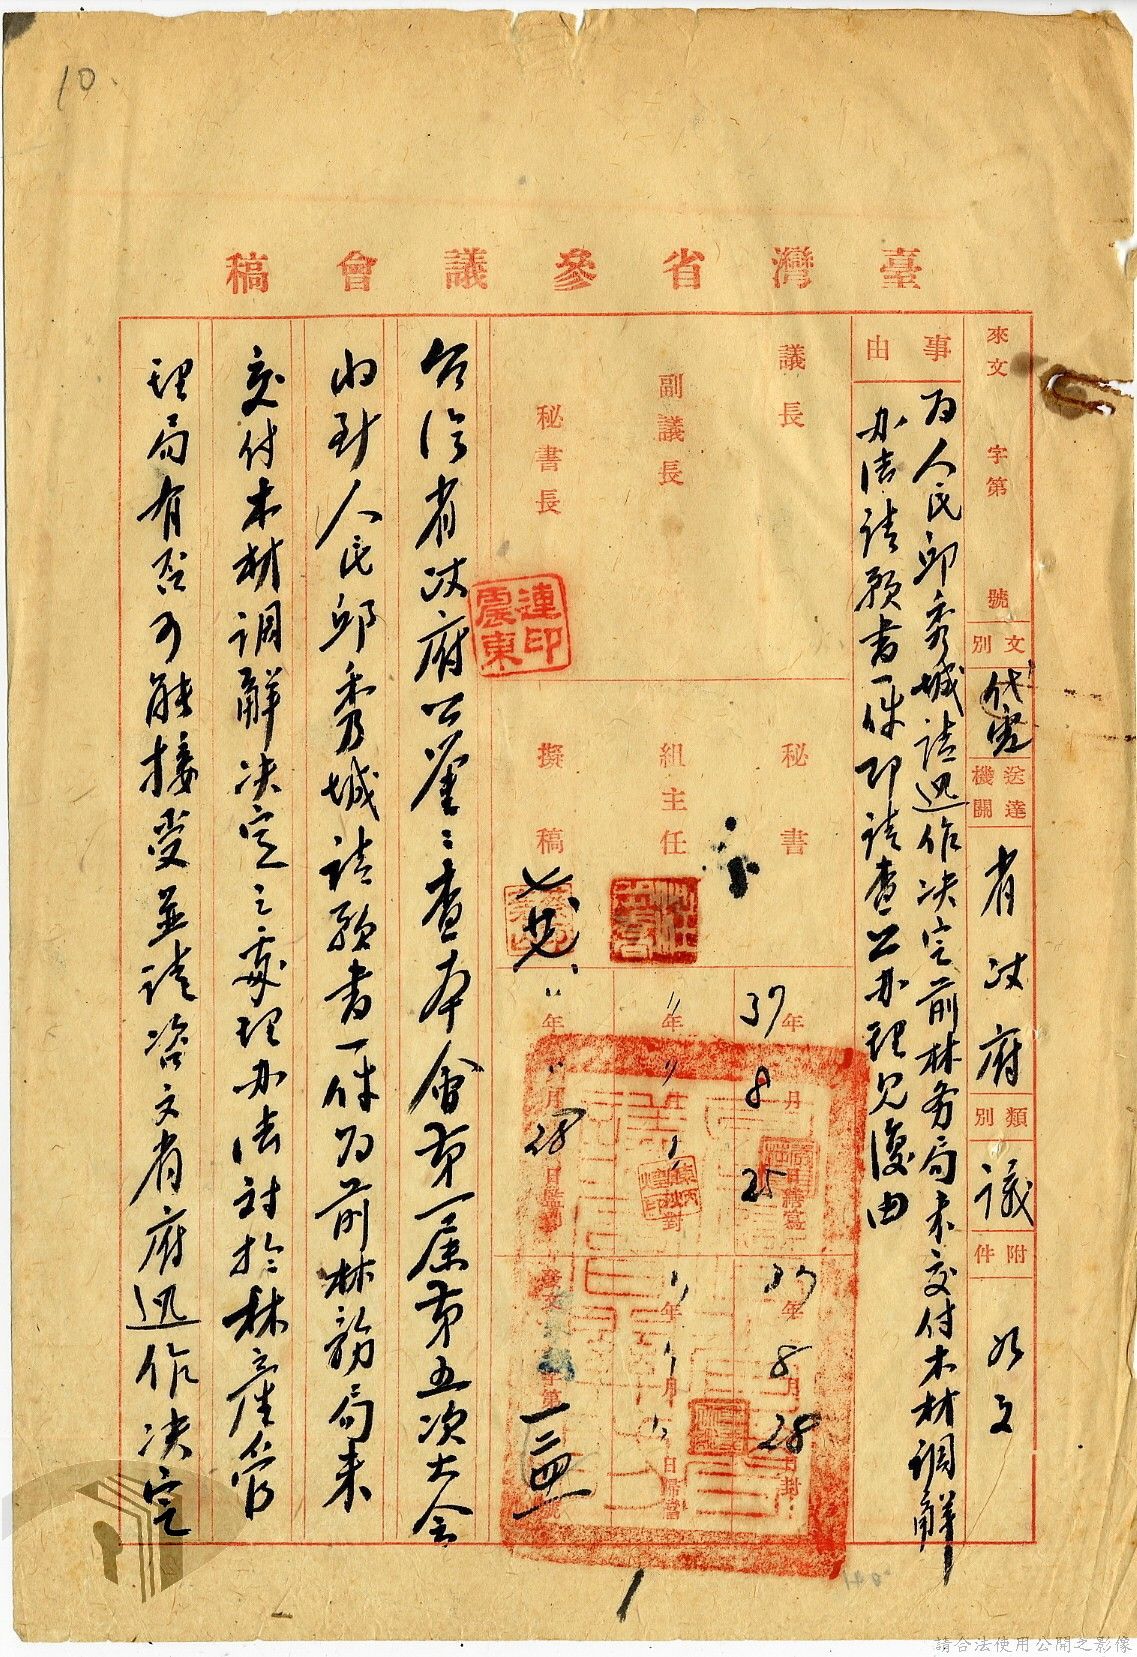 10.
臺灣省參議會稿
來文 字第 號
文別 代電
送達機關 省政府
類別 議
附件 如文
事由
為人民邱秀城請迅作決定前林务局未交付木材調解
办法請願書一件即請查照办理見復由
議長
副議長
秘書長
連震東印
秘書
組主任
擬稿
37年8月25日繕寫
年 月 校對
年 月28日監印
37年8月28日封
年 月 日歸檔
發文 字第 號
台湾省政府公鑒:查本會第一屆第五次大会
收到人民邱秀城請願書一件為前林務局未
交付木材調解決定之處理办法対於林產管
理局有否可能接受並請咨文省府迅作決定
1
請合法使用公開之影像